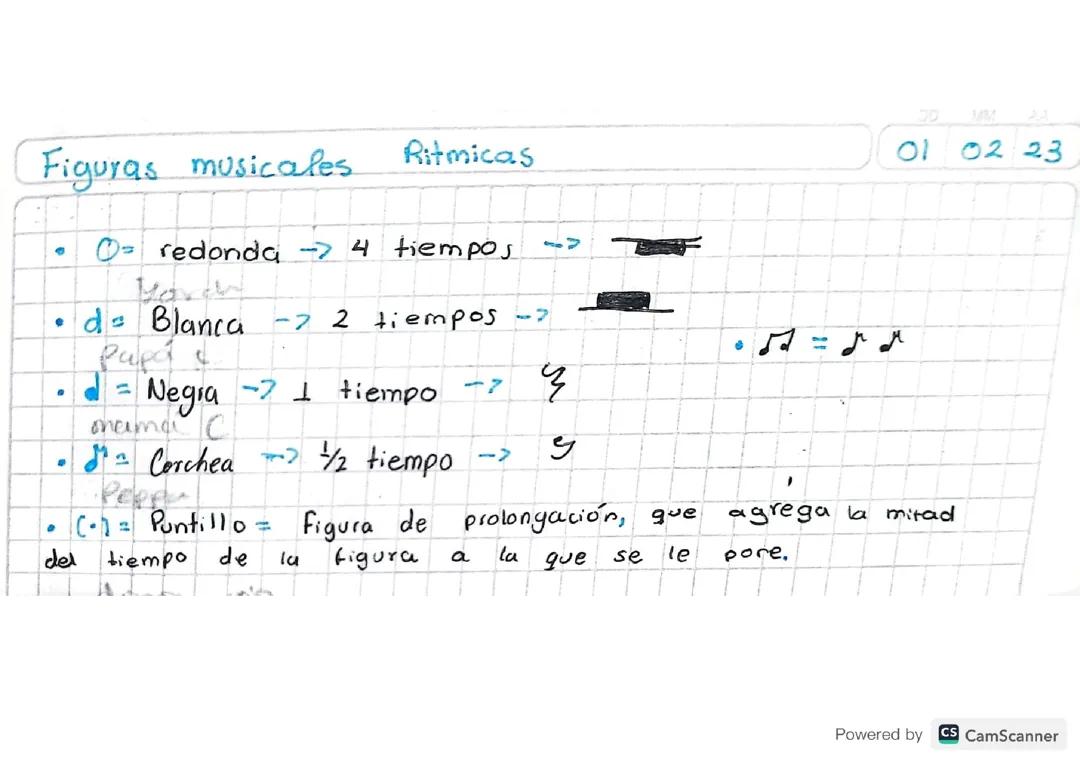 Figuras musicales Ritmicas
01 02 23
• O= redonda -> 4 tiempos ->
• d= Blanca -> 2 tiempos ->
Papá
• ♫ = ♪ ♪
• d = Negra -> 1 tiempo ->
mamá C
• ♪= Corchea -> ½ tiempo ->
Peppa
• (•) = Puntillo = Figura de prolongación, que agrega la mitad
del tiempo de la figura a la que se le pone.
Powered by CS CamScanner